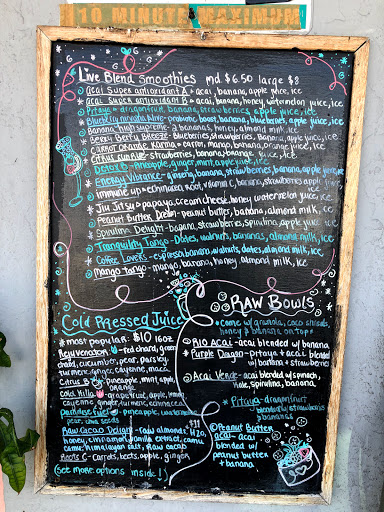 10 MINUTE MAXIMUM
Live Blend Smoothies md $6.50 large $8
* acai Super antioxidant A - acai, banana, apple juice, ice
* acai Super antioxidant B - acai, banana, honey, watermelon juice, ice
* Pitaya - dragonfruit, banana, strawberries, apple juice, ice
banana, blueberries, apple juice, ice
* Banana high supreme - 2 bananas, honey, almond milk, ice
* Berry Berry Breeze - Blueberries, Strawberries, Banana, apple juice, ice
* Carrot Orange Karma - carrot, mango, banana, orange juice, ice
* Citrus Sunrise - strawberries, banana, orange juice, ice
* Detox B - Pineapple, ginger, mint, apple juice, ice
* Energy Vibrance - ginseng, banana, strawberries, banana, apple juice, ice
* immune up - echinacea root, vitamin C, banana, strawberries, apple juice, ice
* Jiu Jitsu - papaya, cream cheese, honey, watermelon juice, ice
* Peanut Butter Dream - peanut butter, banana, almond milk, ice
* Spirulina Delight - banana, strawberries, spirulina, apple juice, ice
* Tranquility Tango - Dates, walnuts, bananas, almond milk, ice
* Coffee Lovers - espresso, banana, walnuts, dates, almond milk, ice
* mango tango - mango, banana, honey, almond milk, ice
Cold Pressed Juice
* most popular: $10 16oz
Rejuvenation - red chard, green
chard, cucumber, pear, parsley
turmeric, ginger, cayenne, maca
Citrus B - pineapple, mint, apple
orange
Cold Killa - grapefruit, apple, honey
cayenne, ginger, turmeric, echinacea
- pineapple, watermelon
pear, chia seeds
Raw Cacao Delight - raw almonds, H2O, $11
honey, cinnamon, vanilla extract, camu
camu, himalayan salt, raw cacao
Roots C - carrots, beets, apple, ginger
(see more options inside!)
RAW BOWLS
* come w/ granola, coco shreds,
honey & banana on top *
Rio Acai - acai blended w/ banana
Purple Dragon - pitaya + acai blended
w/ banana + strawberries
Acai Verde - acai blended w/ spinach,
kale, spirulina, banana
* Pitaya - dragonfruit
blended w/ strawberries
& bananas
Peanut Butter
acai - acai
blended w/
peanut butter
+ banana